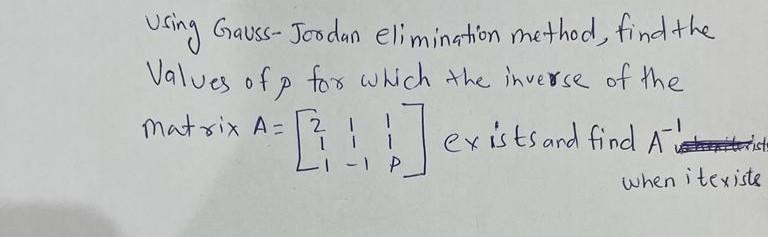 Using Gauss-Jordan elimination method, find the
Values of p for which the inverse of the
matrix A = [2 1 1
1 1 1
1 -1 P] exists and find A⁻¹
when it existe